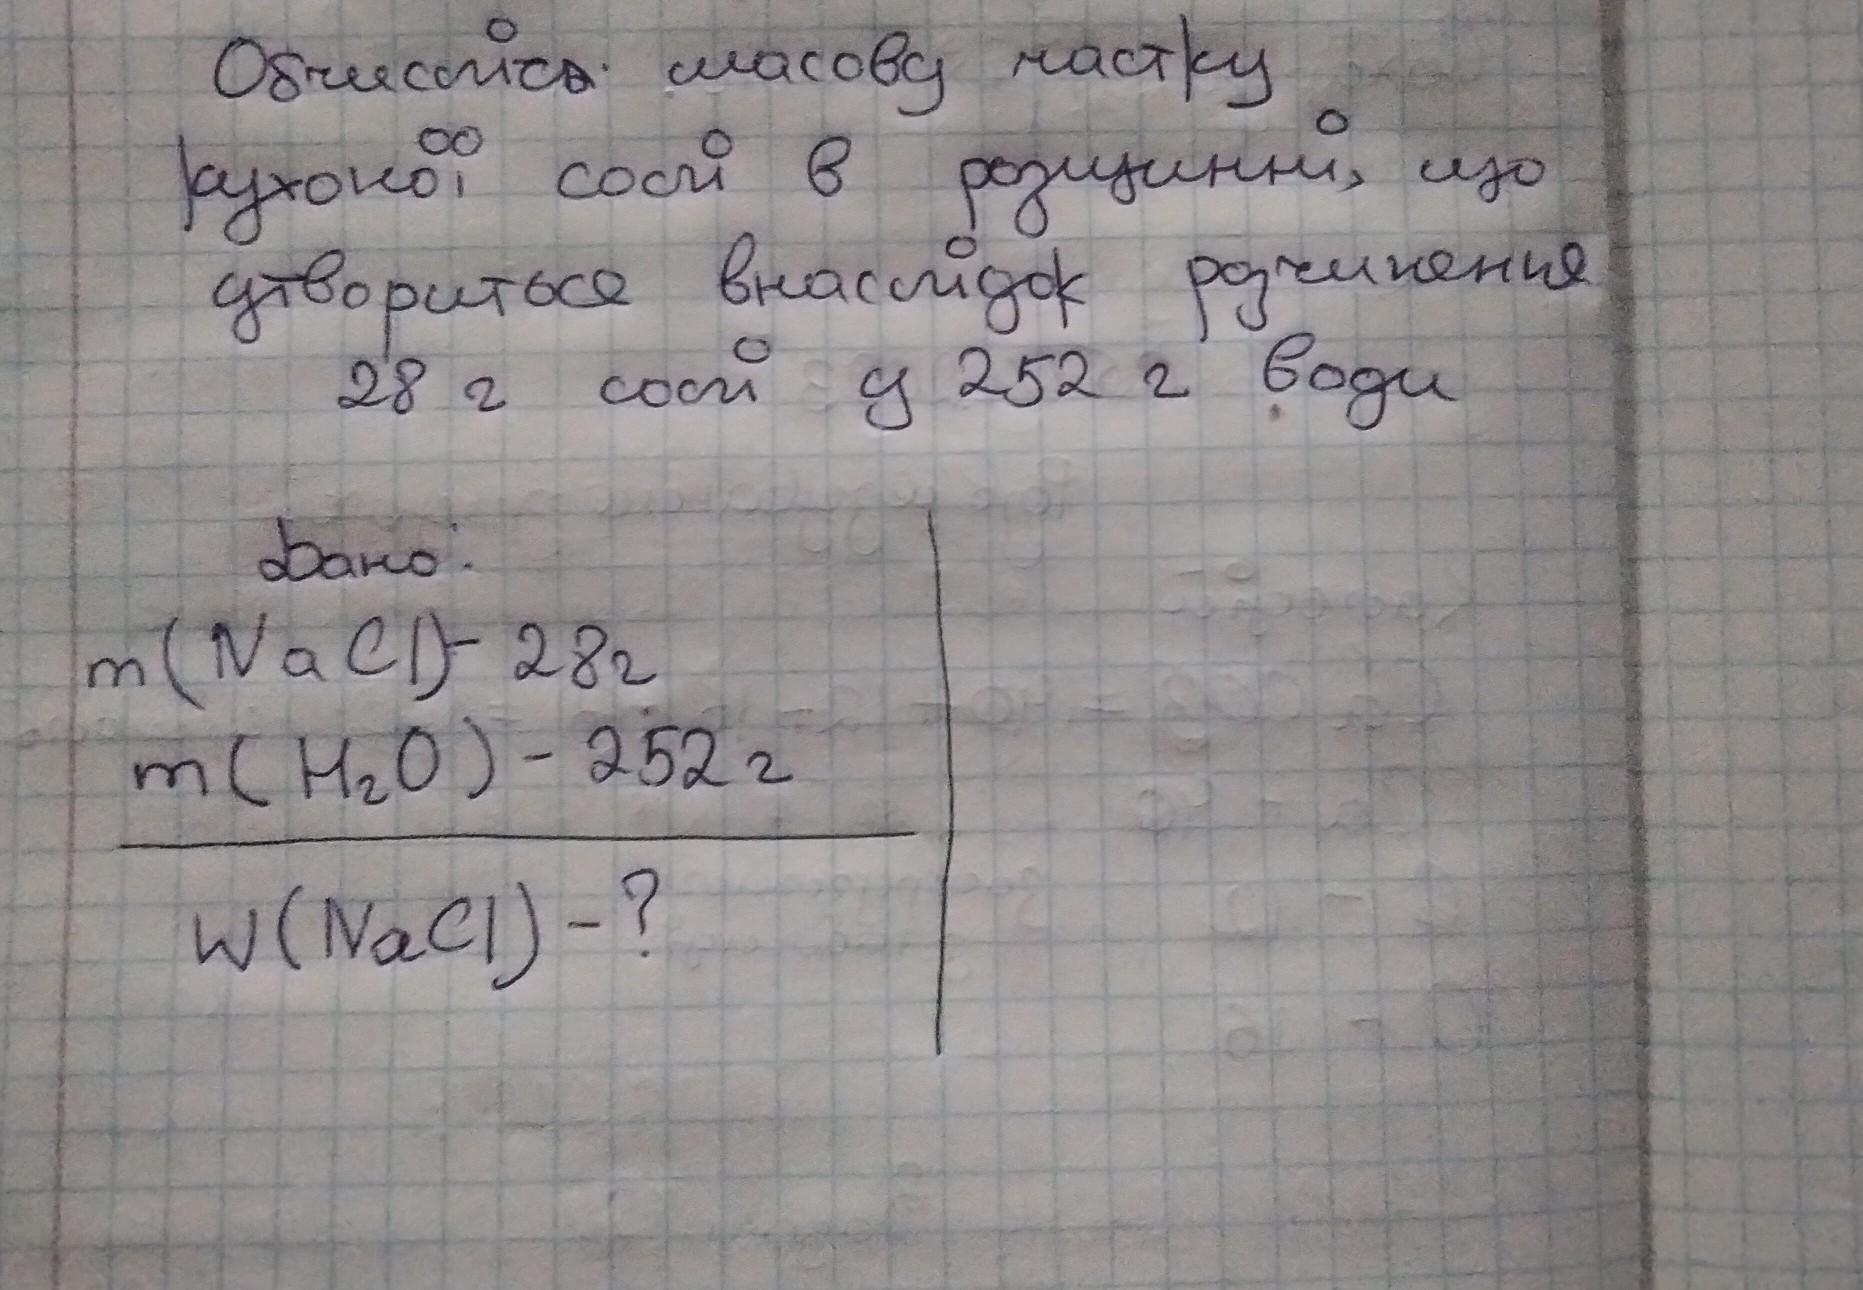 Обчисліть масову частку
кухоної солі в розщинні, що
утвориться внаслідок розчинення
28 г солі у 252 г води
Дано:
m(NaCl)- 28г
m(H₂O) - 252 г
W(NaCl) - ?